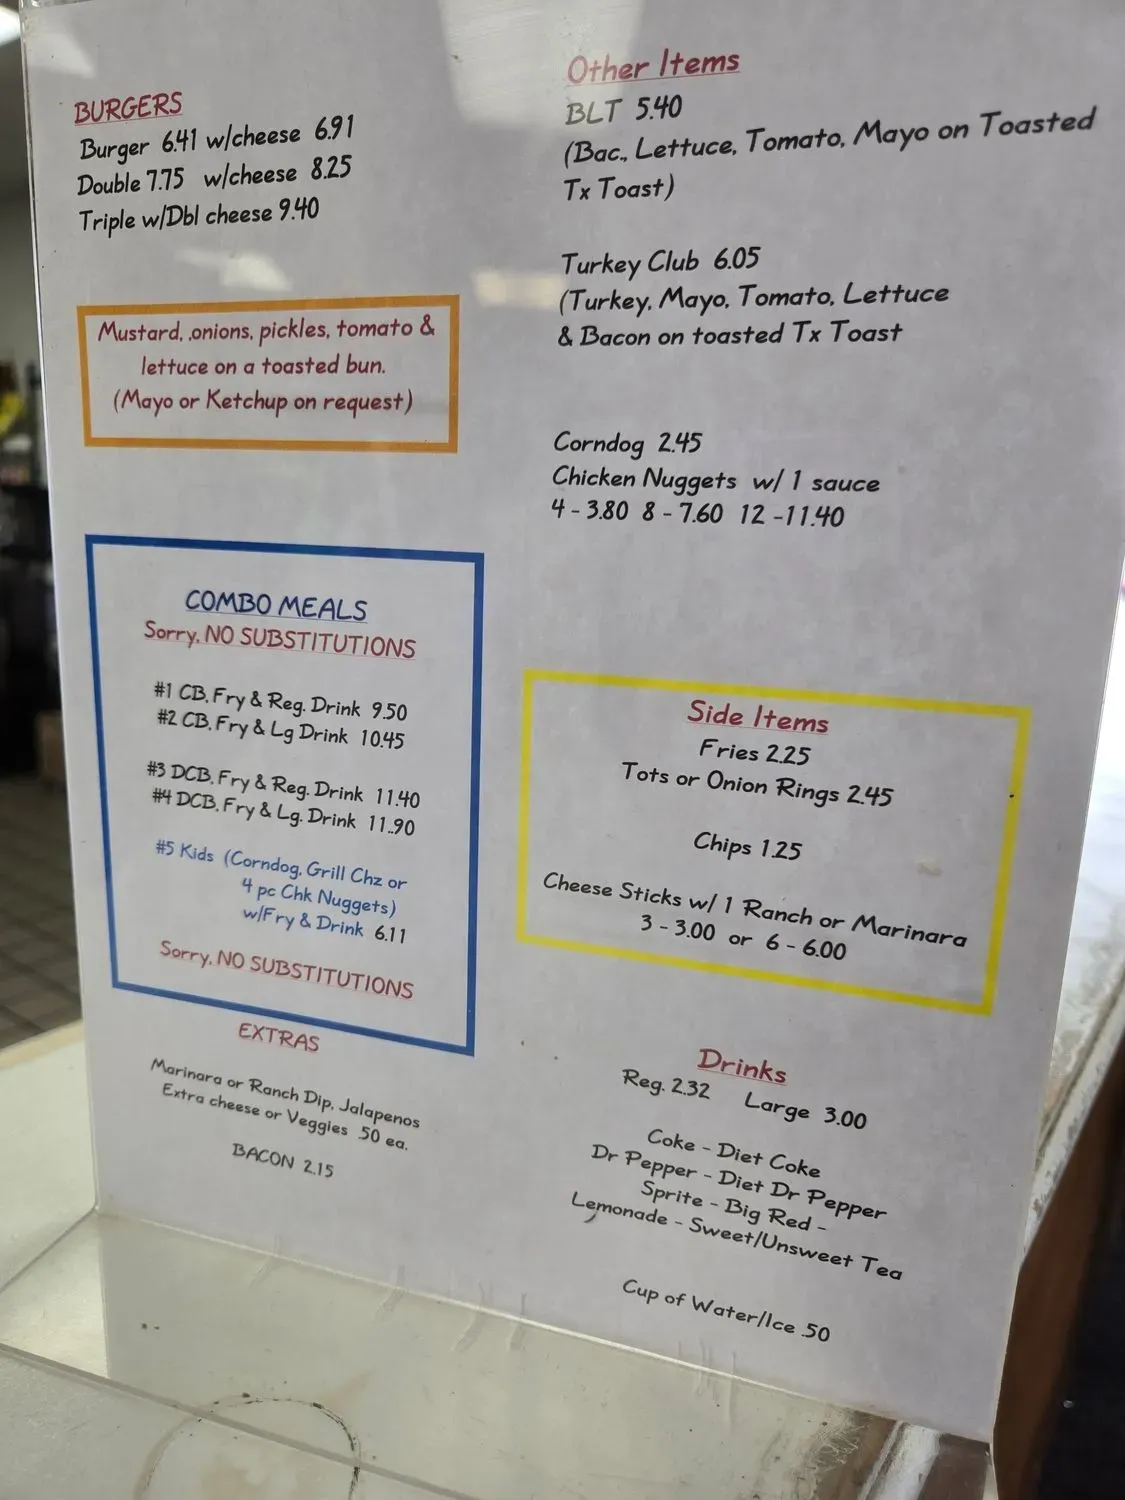 BURGERS
Burger 6.41 w/cheese 6.91
Double 7.75 w/cheese 8.25
Triple w/Dbl cheese 9.40
Mustard, .onions, pickles, tomato &
lettuce on a toasted bun.
(Mayo or Ketchup on request)
COMBO MEALS
Sorry, NO SUBSTITUTIONS
#1 CB, Fry & Reg. Drink 9.50
#2 CB, Fry & Lg Drink 10.45
#3 DCB, Fry & Reg. Drink 11.40
#4 DCB, Fry & Lg. Drink 11..90
#5 Kids (Corndog, Grill Chz or
4 pc Chk Nuggets)
w/Fry & Drink 6.11
Sorry, NO SUBSTITUTIONS
EXTRAS
Marinara or Ranch Dip, Jalapenos
Extra cheese or Veggies .50 ea.
BACON 2.15
Other Items
BLT 5.40
(Bac., Lettuce, Tomato, Mayo on Toasted
Tx Toast)
Turkey Club 6.05
(Turkey, Mayo, Tomato, Lettuce
& Bacon on toasted Tx Toast
Corndog 2.45
Chicken Nuggets w/ 1 sauce
4 - 3.80 8 - 7.60 12 -11.40
Side Items
Fries 2.25
Tots or Onion Rings 2.45
Chips 1.25
Cheese Sticks w/ 1 Ranch or Marinara
3 - 3.00 or 6 - 6.00
Drinks
Reg. 2.32 Large 3.00
Coke - Diet Coke
Dr Pepper - Diet Dr Pepper
Sprite - Big Red -
Lemonade - Sweet/Unsweet Tea
Cup of Water/Ice .50